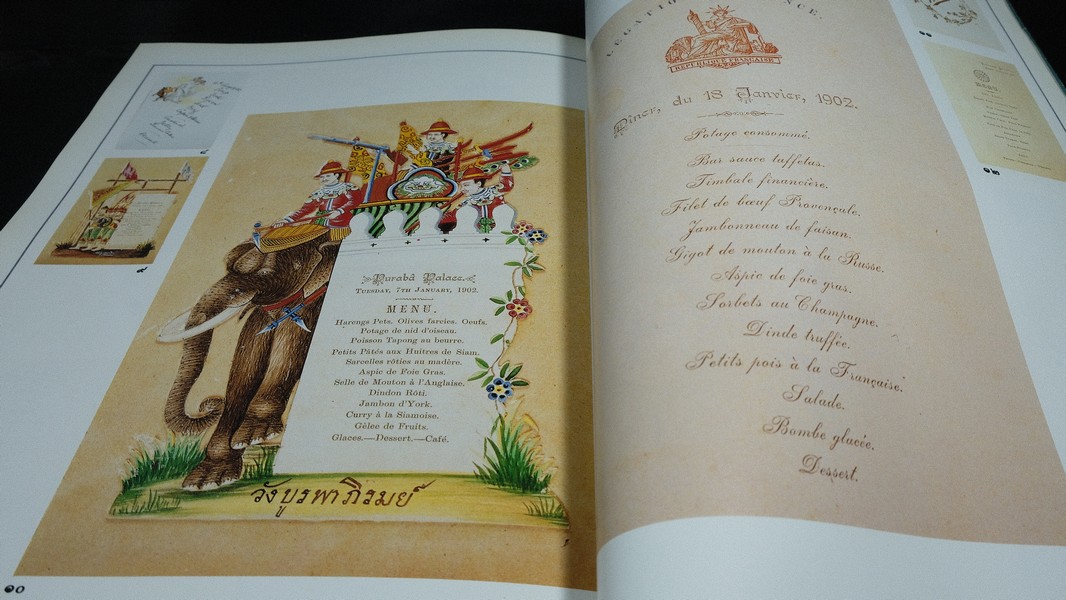 Burabâ Palace.
Tuesday, 7th January, 1902.
MENU.
Harengs Pets. Olives farcies. Oeufs.
Potage de nid d'oiseau.
Poisson Tapong au beurre.
Petits Pâtés aux Huitres de Siam.
Sarcelles rôties au madère.
Aspic de Foie Gras.
Selle de Mouton à l'Anglaise.
Dindon Rôti.
Jambon d'York.
Curry à la Siamoise.
Gêlee de Fruits.
Glaces.—Dessert.—Café.
วังบูรพาภิรมย์
๑๐
REPUBLIQUE FRANÇAISE
Dîner, du 18 Janvier, 1902.
Potage consommé.
Bar sauce taffetas.
Timbale financière.
Filet de bœuf Provençale.
Jambonneau de faisan.
Gigot de mouton à la Russe.
Aspic de foie gras.
Sorbets au Champagne.
Dinde truffée.
Petits pois à la Française.
Salade.
Bombe glacée.
Dessert.
MENU